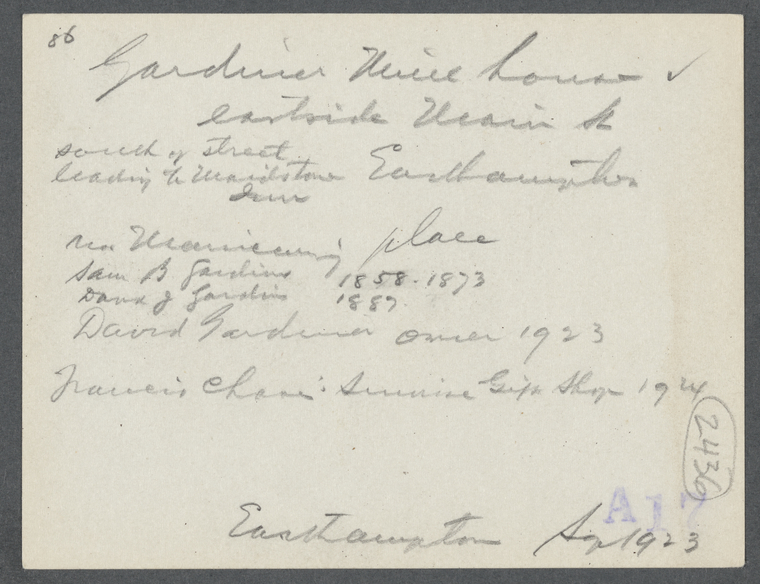 86
Gardiner Mill house ✓
eastside Main St
south of street
leading to Maidstone Easthampton
Inn
place
Sam B Gardiner 1858-1873
David J Gardiner 1887
David Gardiner owner 1923
Francis Chase: Sunrise Gift Shop 1924
2436
A17
Easthampton Sep 1923